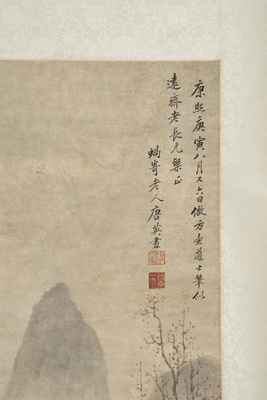 康熙庚寅八月又六日倣方壺道士筆似
遠齋老長兄粲正
蝸寄老人唐英畫